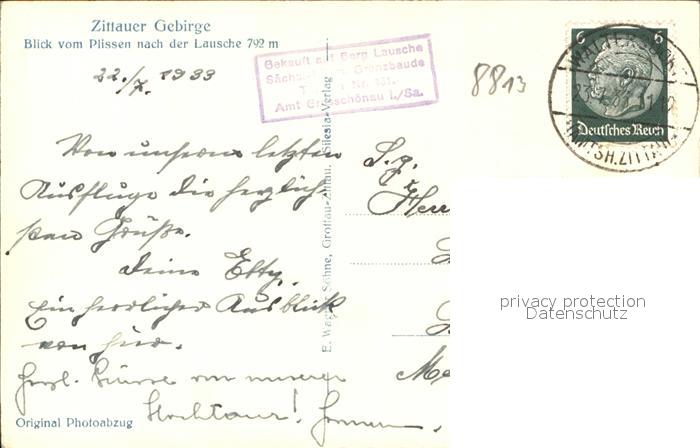 Zittauer Gebirge
Blick vom Plissen nach der Lausche 792 m
22./7. 1933
Gekauft auf Berg Lausche
Sächs. Grenzbaude
Nr. 131.
Amt Großschönau i./Sa.
8813
6 6
Deutsches Reich
WALTERSDORF
(AMTSH. ZITTAU)
Von unserm letzten
Ausfluge die herzlich-
sten Grüße.
Deine Etty.
Ein herrlicher Ausblick
von hier.
Herzl. Grüsse von unserer
Hochtour!
S. g.
Herr
E. Wagner Söhne, Grottau-Zittau. Silesia-Verlag
Original Photoabzug
privacy protection
Datenschutz